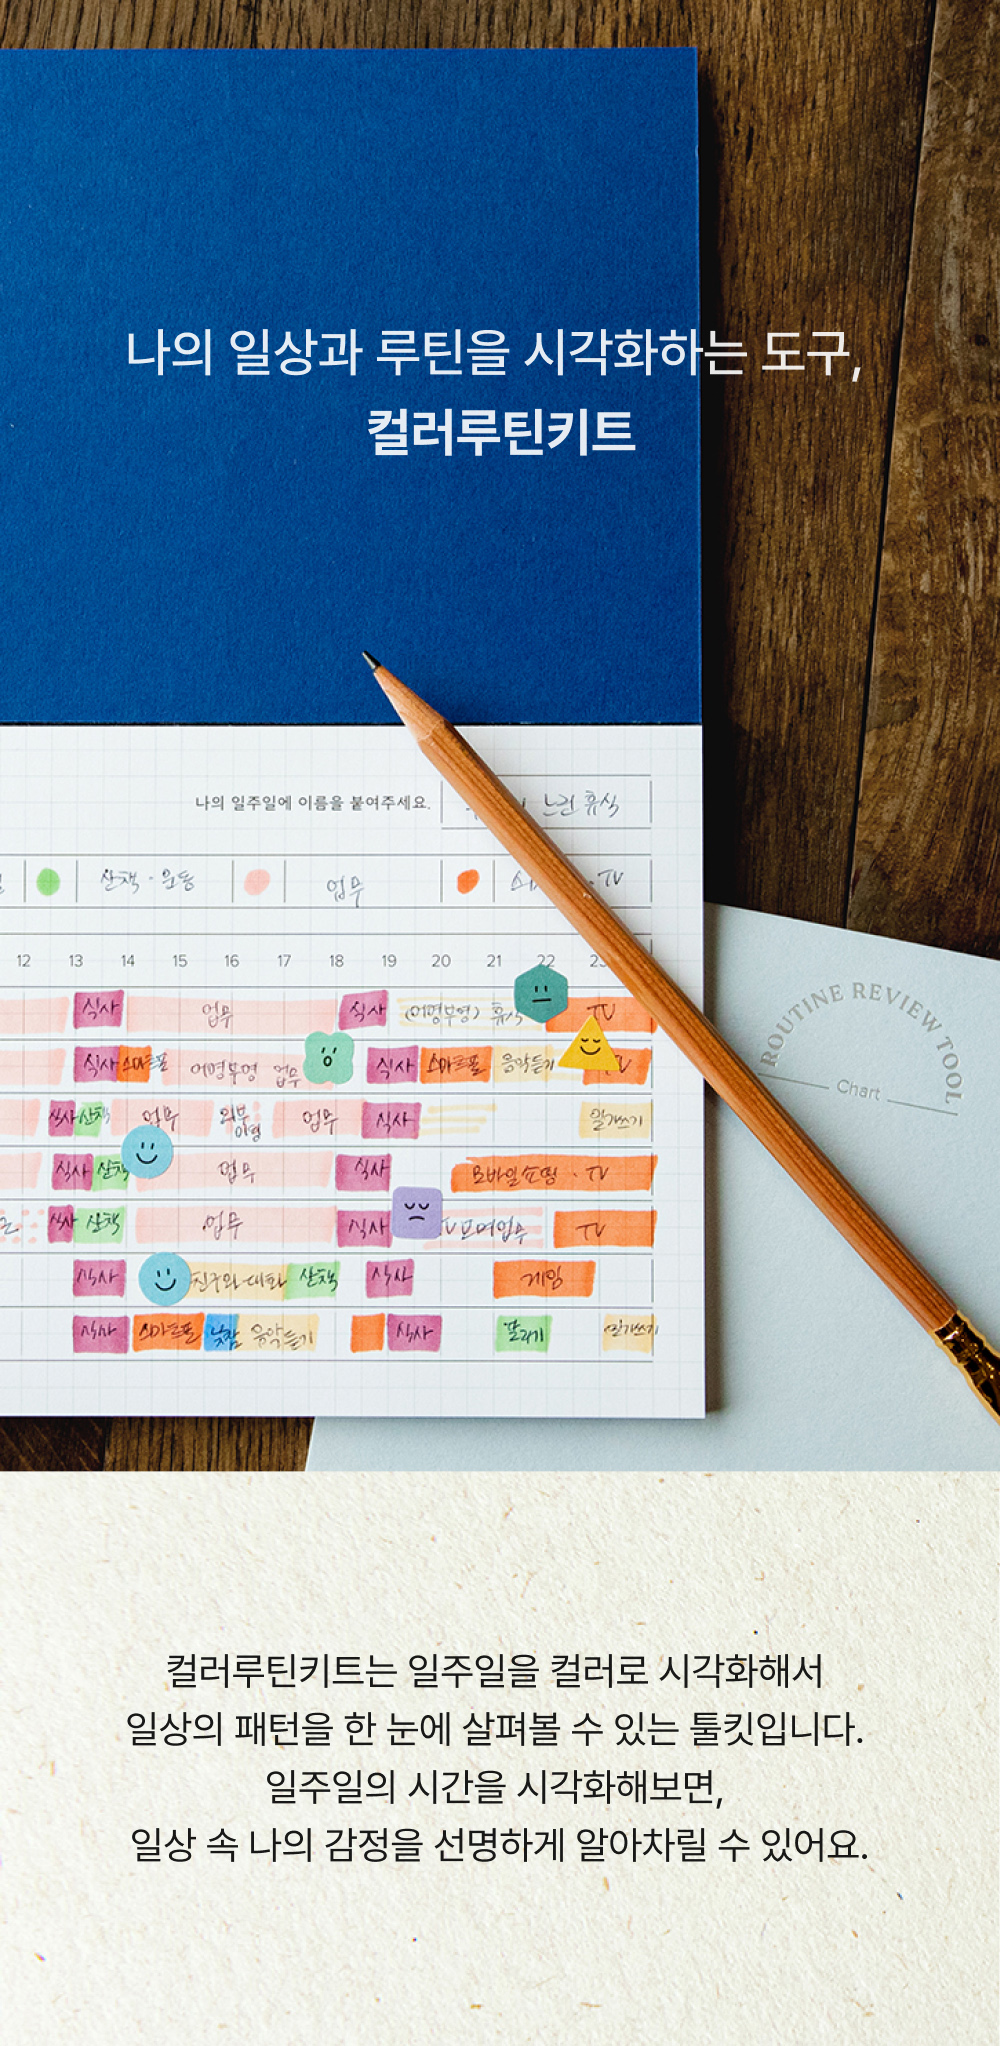 나의 일상과 루틴을 시각화하는 도구,
컬러루틴키트
나의 일주일에 이름을 붙여주세요.
느린 휴식
산책 · 운동
업무
· TV
12 13 14 15 16 17 18 19 20 21 22 23
식사 업무 식사 (어영부영) 휴식 TV
식사 스마트폰 어영부영 업무 식사 스마트폰 음악듣기
식사 산책 업무 외부 미팅 업무 식사 일기쓰기
식사 산책 업무 식사 모바일쇼핑 · TV
식사 산책 업무 식사 TV
식사 친구와 대화 산책 식사 게임
식사 스마트폰 낮잠 음악듣기 식사 일기쓰기
ROUTINE REVIEW TOOL
Chart
컬러루틴키트는 일주일을 컬러로 시각화해서
일상의 패턴을 한 눈에 살펴볼 수 있는 툴킷입니다.
일주일의 시간을 시각화해보면,
일상 속 나의 감정을 선명하게 알아차릴 수 있어요.